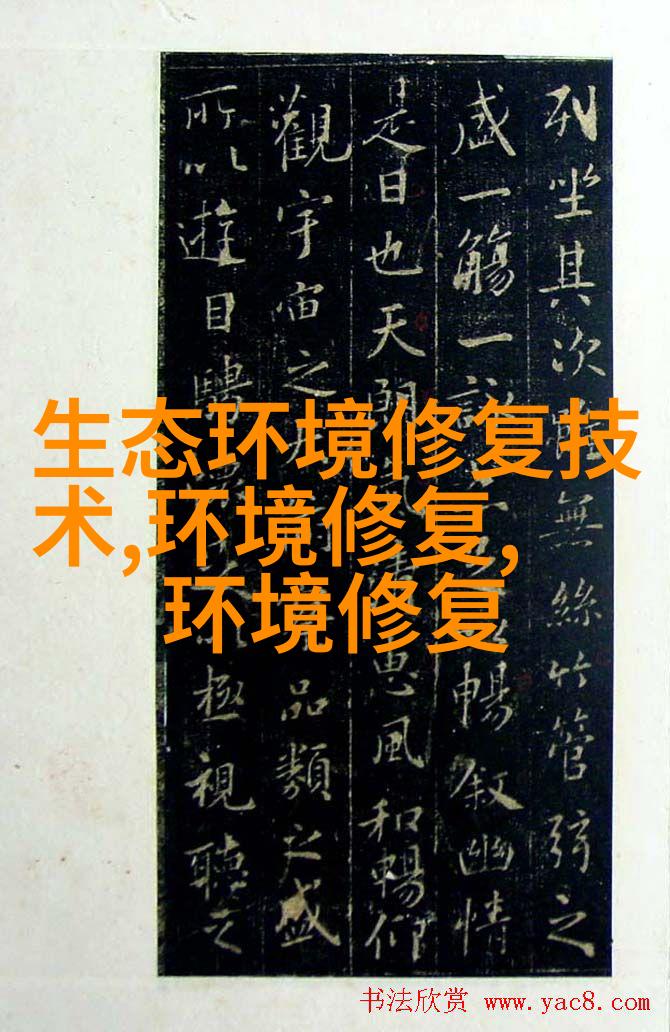 列坐其次雖無絲竹管弦之
盛一觴一詠暢叙幽情
是日也天朗惠風和暢仰
觀宇宙之品類之盛
所以遊目騁極視聽之
生态环境修复技
术,环境修复,
环境修复
书法欣赏 www.yac8.com